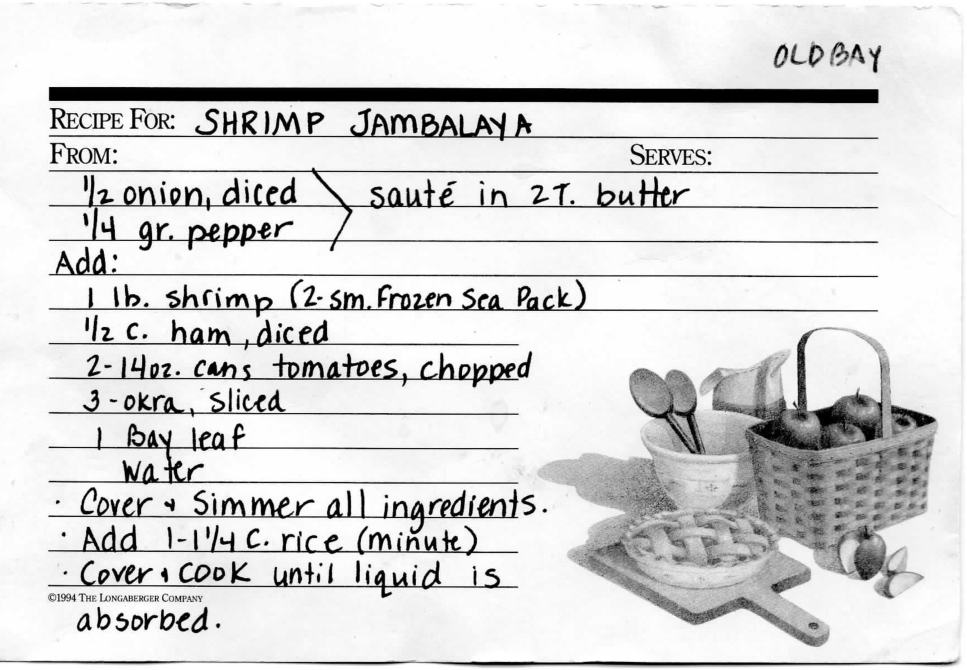 OLD BAY
RECIPE FOR: SHRIMP JAMBALAYA
FROM: SERVES:
1/2 onion, diced > sauté in 2T. butter
1/4 gr. pepper
Add:
1 lb. shrimp (2-sm. Frozen Sea Pack)
1/2 c. ham, diced
2-14oz. cans tomatoes, chopped
3-okra, sliced
1 Bay leaf
water
· Cover & Simmer all ingredients.
· Add 1-1 1/4 C. rice (minute)
· Cover & COOK until liquid is
©1994 THE LONGABERGER COMPANY
absorbed.